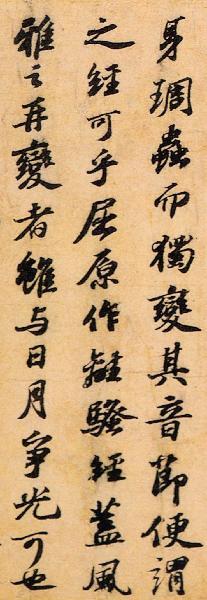 身琱蟲而獨變其音節便謂
之經可乎屈原作離騷經蓋風
雅之再變者雖与日月爭光可也